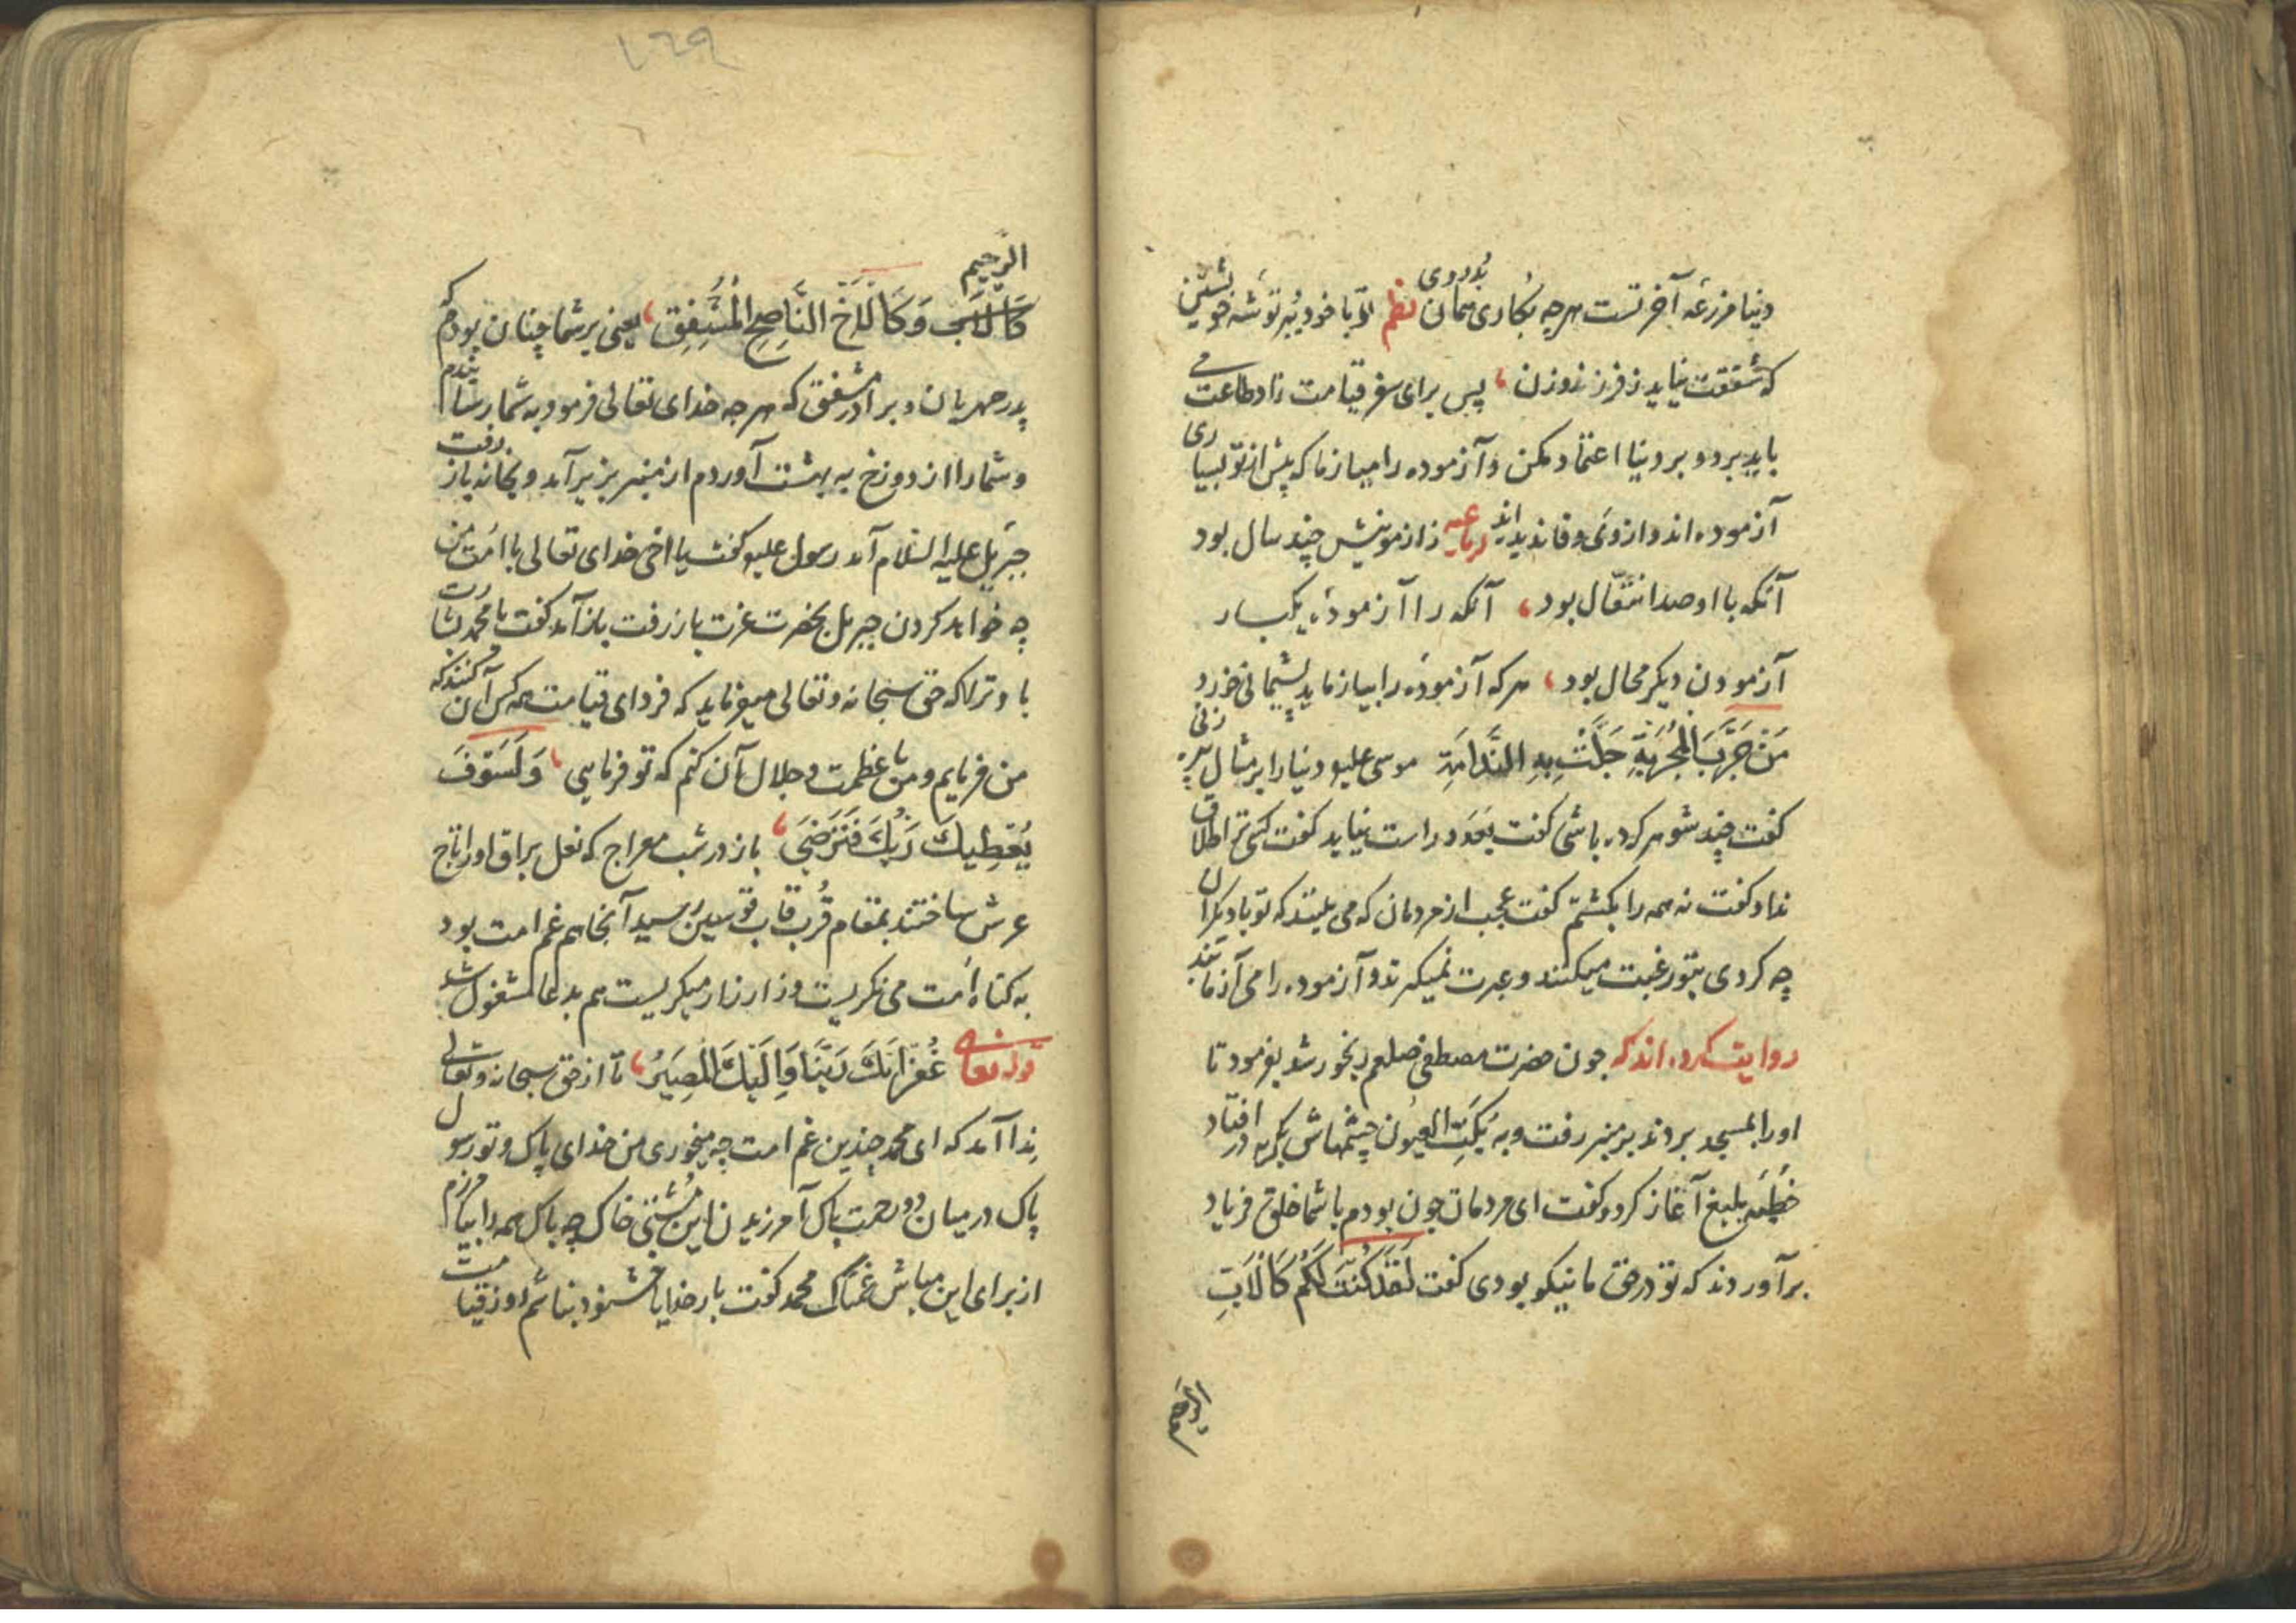 دنیا مزرعه آخرتست هرچه بکاری همان بدروی نظم تو با خود ببر توشه خویشتن
که شفقت نیاید ز فرزند و زن ، پس برای سفر قیامت زاد طاعت می
باید برد و بر دنیا اعتماد مکن و آزموده را میازما که پیش از تو بسیاری
آزموده اند و از وی وفا ندیده اند رباعیه زاد مونیش چند سال بود
آنکه با او صد انتقال بود ، آنکه را آزمودهٔ یکبار
آزمودن دیکر محال بود ، هرکه آزموده را بیازماید پشیمانی خورد
مَنْ جَرَّبَ المُجَرَّبَةِ حَلَّتْ بِهِ النَّدَامَةِ موسی علیه و دنیا را بر مثال پیر زنی
کفت چند شوهر کرده باشی کفت بعدد راست نیاید کفت کسی ترا طلاق
نداد کفت نه همه را بکشتم کفت عجب از مردمان که می بینند که تو با دیکران
چه کردی بتو رغبت میکنند و عبرت نمیکیرند و آزموده را می آزمایند
روایت کرده اند که چون حضرت مصطفی صلعم رنجور شد بفرمود تا
او را بمسجد بردند بر منبر رفت و به بَکَتِ العیون چشمهاش بکریه در افتاد
خطبهٔ بلیغ آغاز کرد و کفت ای مردمان چون بودم با شما خلق فریاد
برآوردند که تو در حق ما نیکو بودی کفت لَقَدْ کُنْتُ لَکُمْ کَالْاَبِ
الرحیم
١٦٩
الرَّحیم
کَالْاَبِ وَکَالْاَخِ النَّاصِحِ الْمُشْفِقِ ، یعنی بر شما چنان بودم که
پدر مهربان و برادر مشفق که هرچه خدای تعالی فرمود به شما رسانیدم
و شما را از دوزخ به بهشت آوردم از منبر بزیر آمد و بخانه باز رفت
جبریل علیه السلام آمد رسول علیه کفت یا اخی خدای تعالی با امت من
چه خواهد کردن جبریل بحضرت عزت باز رفت باز آمد کفت یا محمد بشارت
باد ترا که حق سبحانه و تعالی میفرماید که فردای قیامت همه کس آن کنند که
من فرمایم و من با عظمت و جلال آن کنم که تو فرمایی ، وَلَسَوْفَ
یُعْطِیكَ رَبُّكَ فَتَرْضَی ، باز در شب معراج که نعل براق او را تاج
عرش ساختند بمقام قُرب قاب قوسین رسید آنجا هم غم امت بود
به کناه امت می نکریست و زار زار میکریست هم بدعا مشغول شد
قوله تعالی غُفْرَانَكَ رَبَّنَا وَاِلَیْكَ الْمَصِیرُ ، تا از حق سبحانه و تعالی
ندا آمد که ای محمد چندین غم امت چه میخوری من خدای پاک و تو رسول
پاک در میان دو رحمت پاک آمرزیدن این مشتی خاک چه باک همه را بیامرزم
از برای این مباش غمناک محمد کفت بار خدایا خشنود نباشم روز قیامت